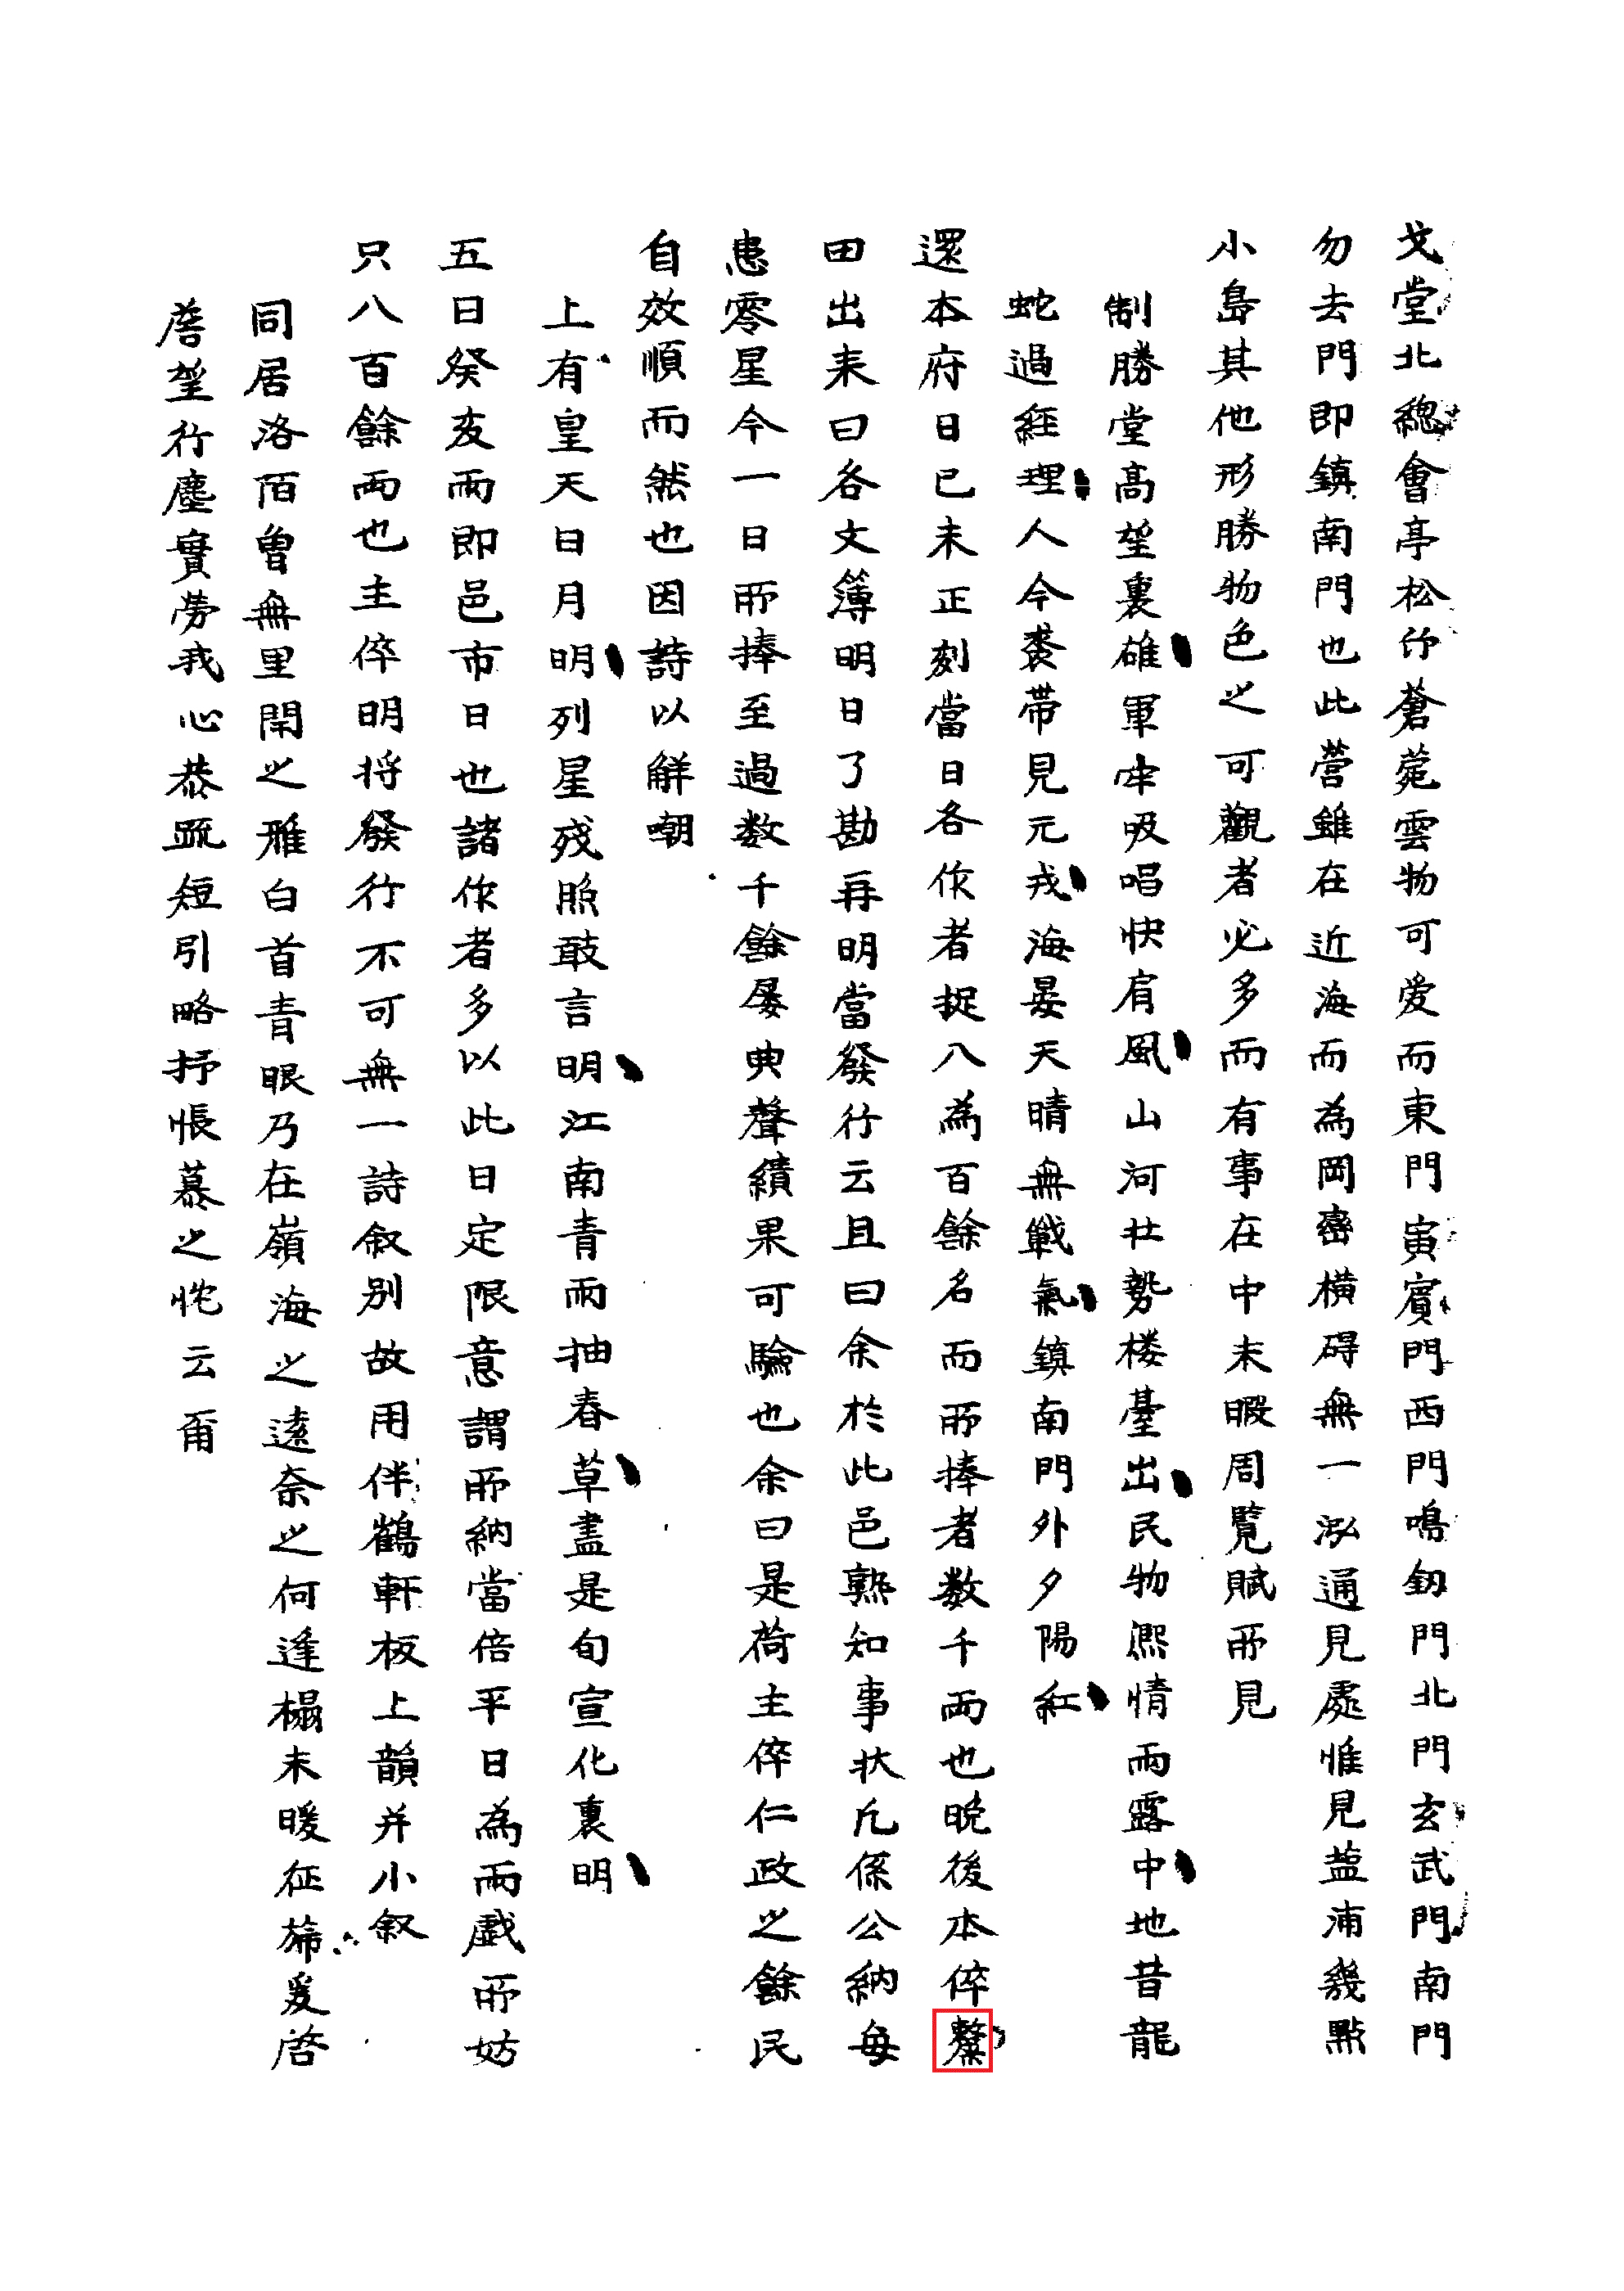 戈堂北緫會亭松竹蒼菀雲物可爱而東門寅賓門西門鳴釰門北門玄武門南門
勿去門即鎮南門也此营雖在近海而為岡巒橫碍無一泓通見處惟見蓝浦幾點
小島其他形勝物色之可觀者必多而有事在中末暇周覧賦所見
制勝堂高望裏雄軍牢吸唱快肩風山河壮勢楼臺出民物熈情雨露中地昔龍
蛇過經理人今裘带見元戎海晏天晴無戰氣鎮南門外夕陽紅
還本府日已未正刻當日各作者捉八為百餘名而所捧者数千両也晩後本倅
田出来曰各文簿明日了勘再明當發行云且曰余於此邑熟知事状凢係公納每
患零星今一日所捧至過数千餘屡典聲績果可驗也余曰是荷主倅仁政之餘民
自效順而然也因詩以觧嘲
上有皇天日月明列星殘照敢言明江南青雨抽春草盡是旬宣化裏明
五日癸亥雨即邑市日也諸作者多以此日定限意謂所納當倍平日為雨戲所妨
只八百餘両也主倅明将發行不可無一詩叙别故用伴鶴軒板上韻并小叙
同居洛陌曽無里閈之雅白首青眼乃在嶺海之遠奈之何逢榻未暖征旆爰啓
詹望行塵實勞我心恭疏短引略抒悵慕之恍云甭